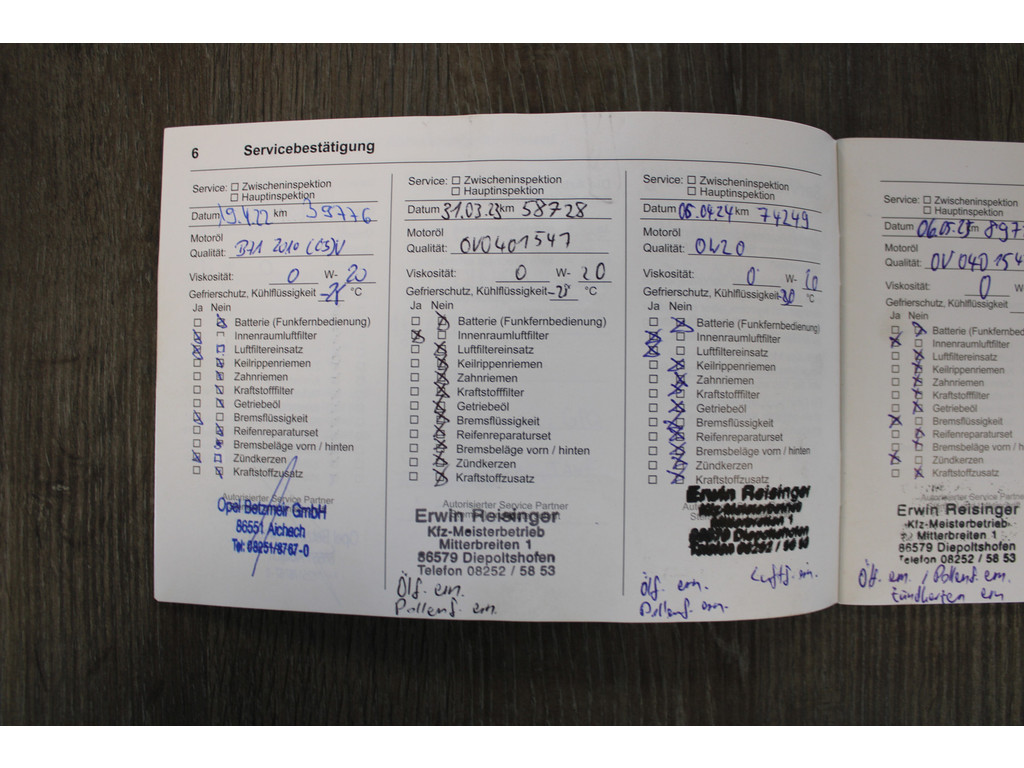 6 Servicebestätigung
Service: Zwischeninspektion
Hauptinspektion
Datum 19.4.22 km 39776
Motoröl
Qualität:
Viskosität: 0 W- 20
Gefrierschutz, Kühlflüssigkeit °C
Ja Nein
Batterie (Funkfernbedienung)
Innenraumluftfilter
Luftfiltereinsatz
Keilrippenriemen
Zahnriemen
Kraftstofffilter
Getriebeöl
Bremsflüssigkeit
Reifenreparaturset
Bremsbeläge vorn / hinten
Zündkerzen
Kraftstoffzusatz
Autorisierter Service Partner
Opel Betzmeir GmbH
86551 Aichach
Tel: 08251/8767-0
Service: Zwischeninspektion
Hauptinspektion
Datum 31.03.23 km 58728
Motoröl
Qualität: OV0401547
Viskosität: 0 W- 20
Gefrierschutz, Kühlflüssigkeit -28 °C
Ja Nein
Batterie (Funkfernbedienung)
Innenraumluftfilter
Luftfiltereinsatz
Keilrippenriemen
Zahnriemen
Kraftstofffilter
Getriebeöl
Bremsflüssigkeit
Reifenreparaturset
Bremsbeläge vorn / hinten
Zündkerzen
Kraftstoffzusatz
Autorisierter Service Partner
Erwin Reisinger
Kfz-Meisterbetrieb
Mitterbreiten 1
86579 Diepoltshofen
Telefon 08252 / 58 53
Ölf. ern.
Pollenf. ern.
Service: Zwischeninspektion
Hauptinspektion
Datum 05.04.24 km 74249
Motoröl
Qualität: 0W20
Viskosität: 0 W- 20
Gefrierschutz, Kühlflüssigkeit -30 °C
Ja Nein
Batterie (Funkfernbedienung)
Innenraumluftfilter
Luftfiltereinsatz
Keilrippenriemen
Zahnriemen
Kraftstofffilter
Getriebeöl
Bremsflüssigkeit
Reifenreparaturset
Bremsbeläge vorn / hinten
Zündkerzen
Kraftstoffzusatz
Erwin Reisinger
Kfz-Meisterbetrieb
Mitterbreiten 1
86579 Diepoltshofen
Telefon 08252 /
Ölf. ern. Luftf. ern.
Pollenf. ern.
Service: Zwischeninspektion
Hauptinspektion
Datum 06.05.25 km 897
Motoröl
Qualität: OV040154
Viskosität: 0
Gefrierschutz, Kühlflüssigke
Ja Nein
Batterie (Funkfernbed
Innenraumluftfilter
Luftfiltereinsatz
Keilrippenriemen
Zahnriemen
Kraftstofffilter
Getriebeöl
Bremsflüssigkeit
Reifenreparaturset
Bremsbeläge vorn / hi
Zündkerzen
Kraftstoffzusatz
Autorisierter Service Partner
Erwin Reisinger
Kfz-Meisterbetrieb
Mitterbreiten 1
86579 Diepoltshofen
Telefon 08252 / 58 53
Ölf. ern. / Pollenf. ern.
Zündkerzen ern